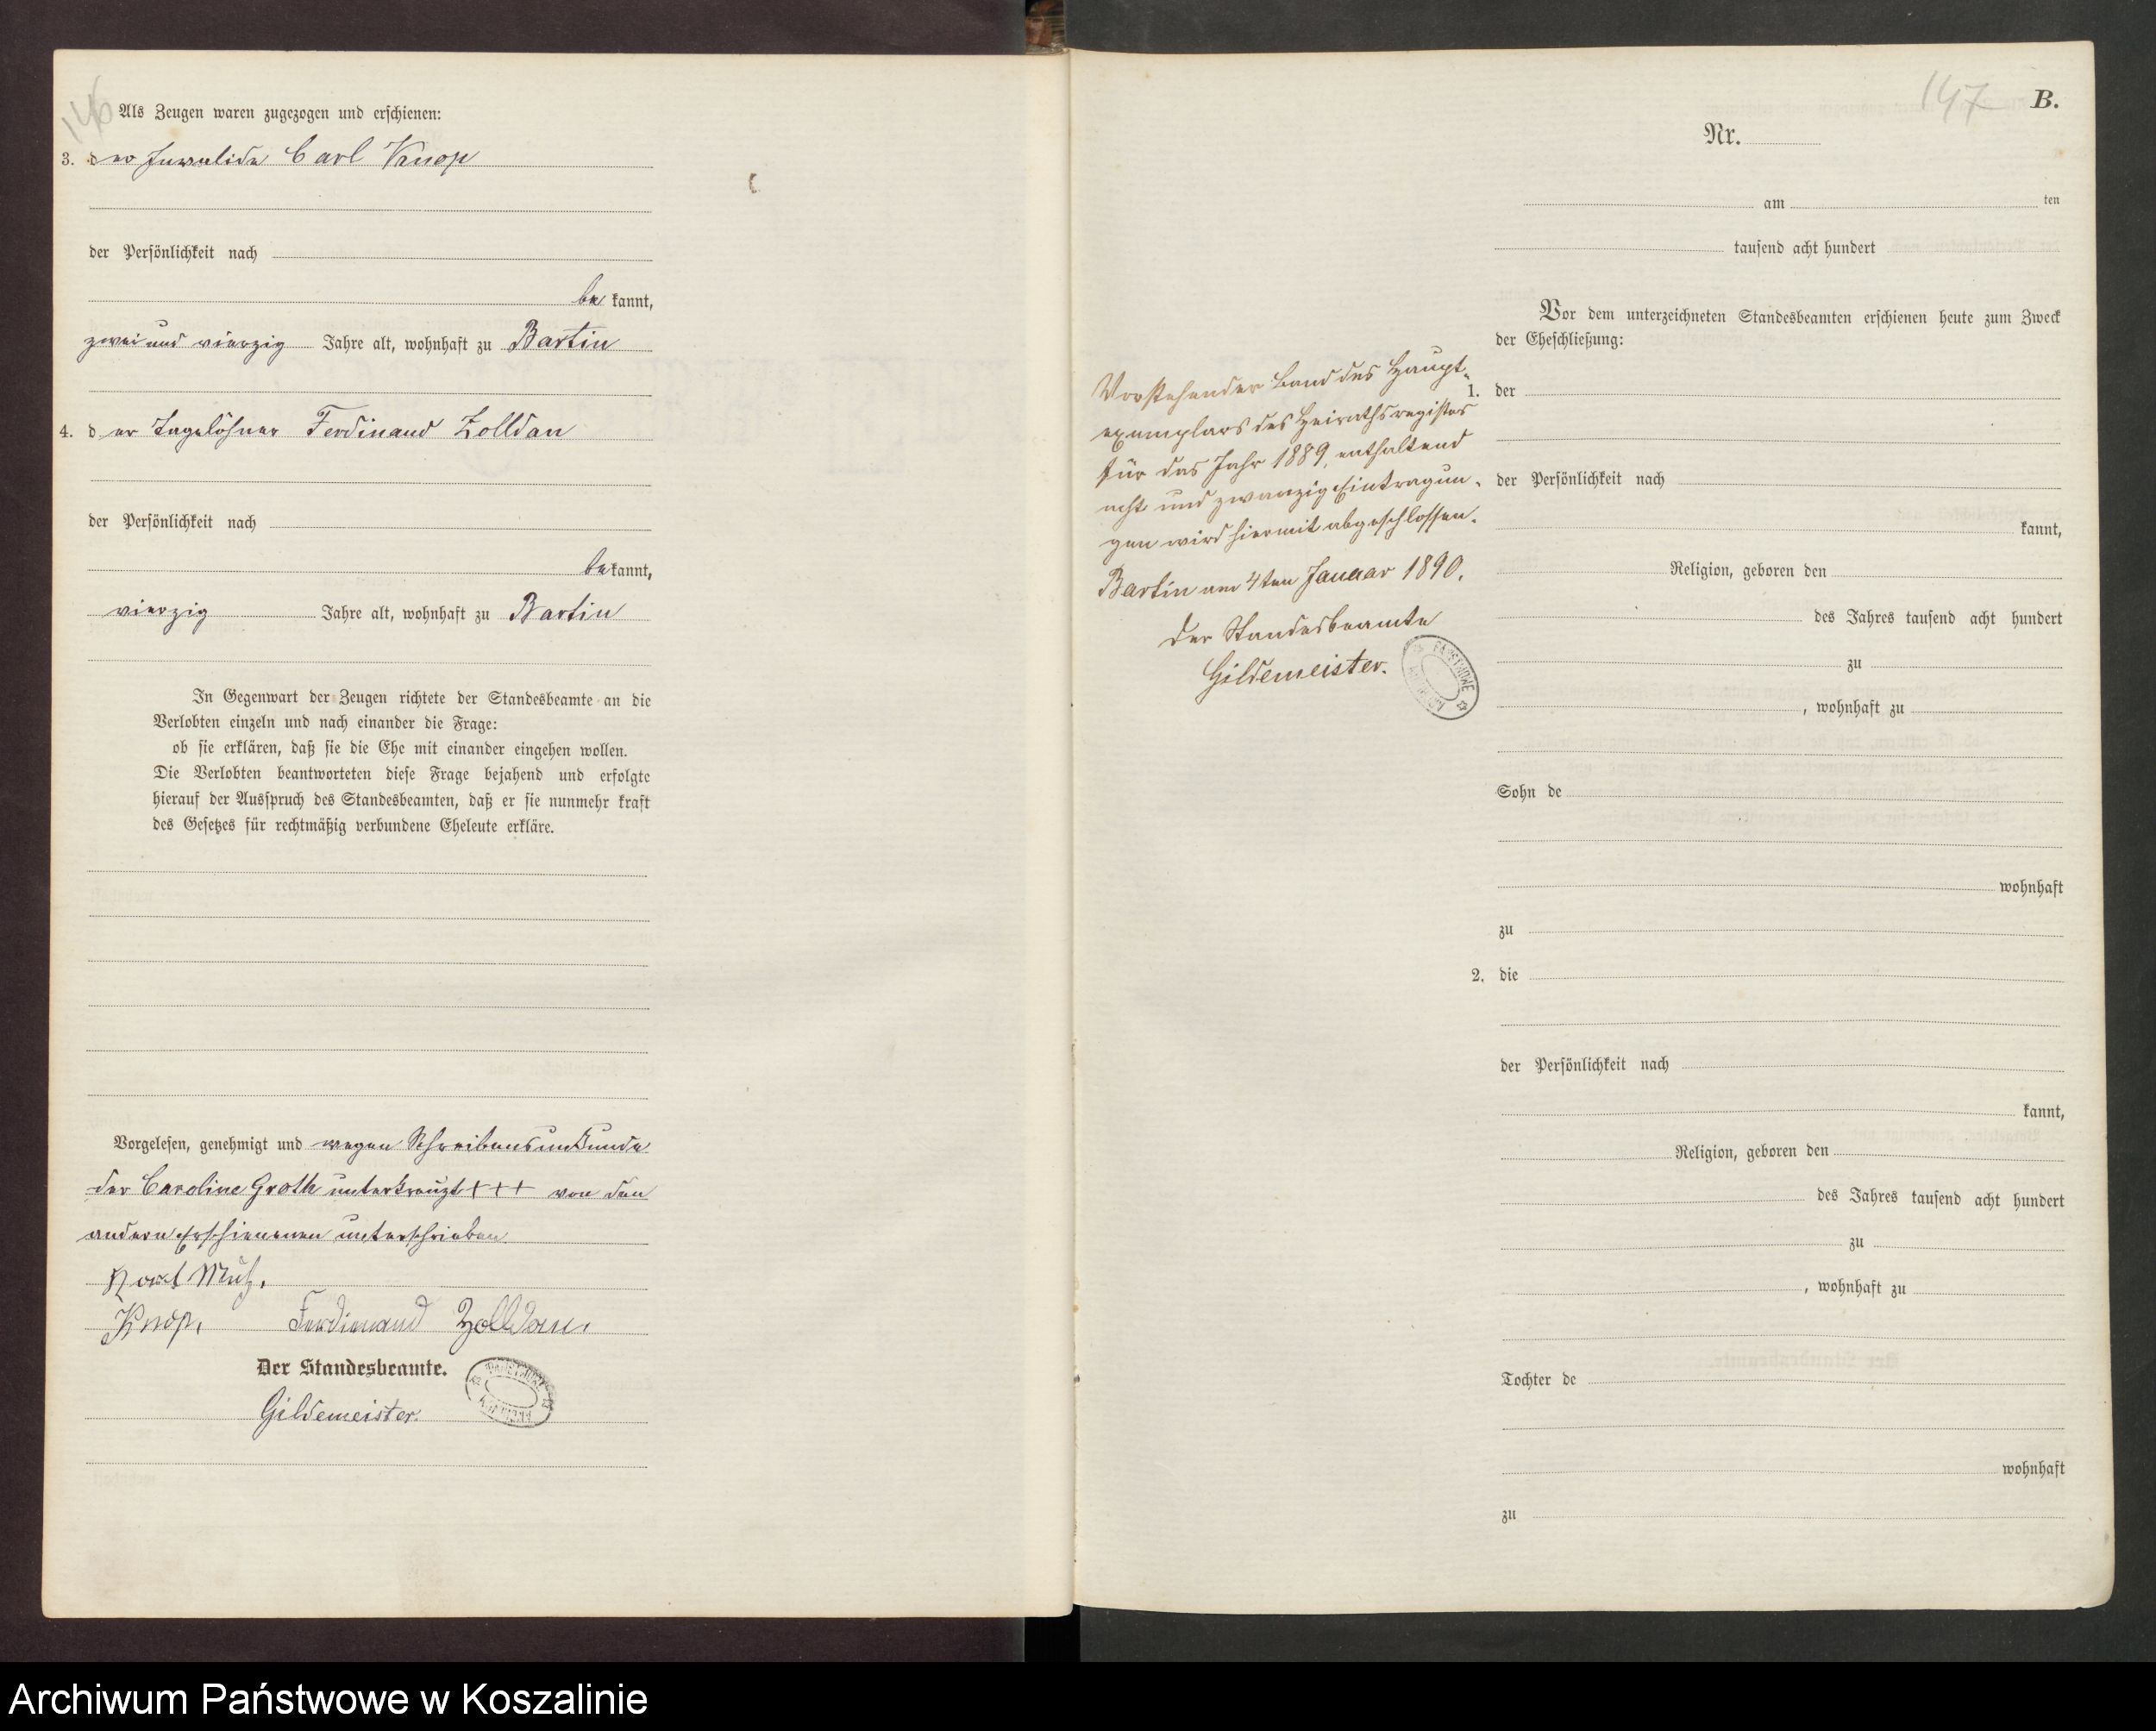 146
Als Zeugen waren zugezogen und erschienen:
3. der Invalide Carl Knop
der Persönlichkeit nach
be kannt,
zwei und vierzig Jahre alt, wohnhaft zu Bartin
4. der Tagelöhner Ferdinand Zolldan
der Persönlichkeit nach
bekannt,
vierzig Jahre alt, wohnhaft zu Bartin
In Gegenwart der Zeugen richtete der Standesbeamte an die
Verlobten einzeln und nach einander die Frage:
ob sie erklären, daß sie die Ehe mit einander eingehen wollen.
Die Verlobten beantworteten diese Frage bejahend und erfolgte
hierauf der Ausspruch des Standesbeamten, daß er sie nunmehr kraft
des Gesetzes für rechtmäßig verbundene Eheleute erkläre.
Vorgelesen, genehmigt und wegen Schreibensunkunde
der Caroline Groth unterkreuzt +++ von den
andern Erschienenen unterschrieben.
Knop. Ferdinand Zolldan.
Der Standesbeamte.
Gildemeister.
147 B.
Nr.
am ten
tausend acht hundert
Vor dem unterzeichneten Standesbeamten erschienen heute zum Zweck
der Eheschließung:
Vorstehender Band des Haupt-
exemplars des Heirathsregisters
für das Jahr 1889, enthaltend
acht und zwanzig Eintragun-
gen wird hiermit abgeschlossen.
Bartin am 4ten Januar 1890.
Der Standesbeamte
Gildemeister.
1. der
der Persönlichkeit nach
kannt,
Religion, geboren den
des Jahres tausend acht hundert
zu
, wohnhaft zu
Sohn de
wohnhaft
zu
2. die
der Persönlichkeit nach
kannt,
Religion, geboren den
des Jahres tausend acht hundert
zu
, wohnhaft zu
Tochter de
wohnhaft
zu
Archiwum Państwowe w Koszalinie